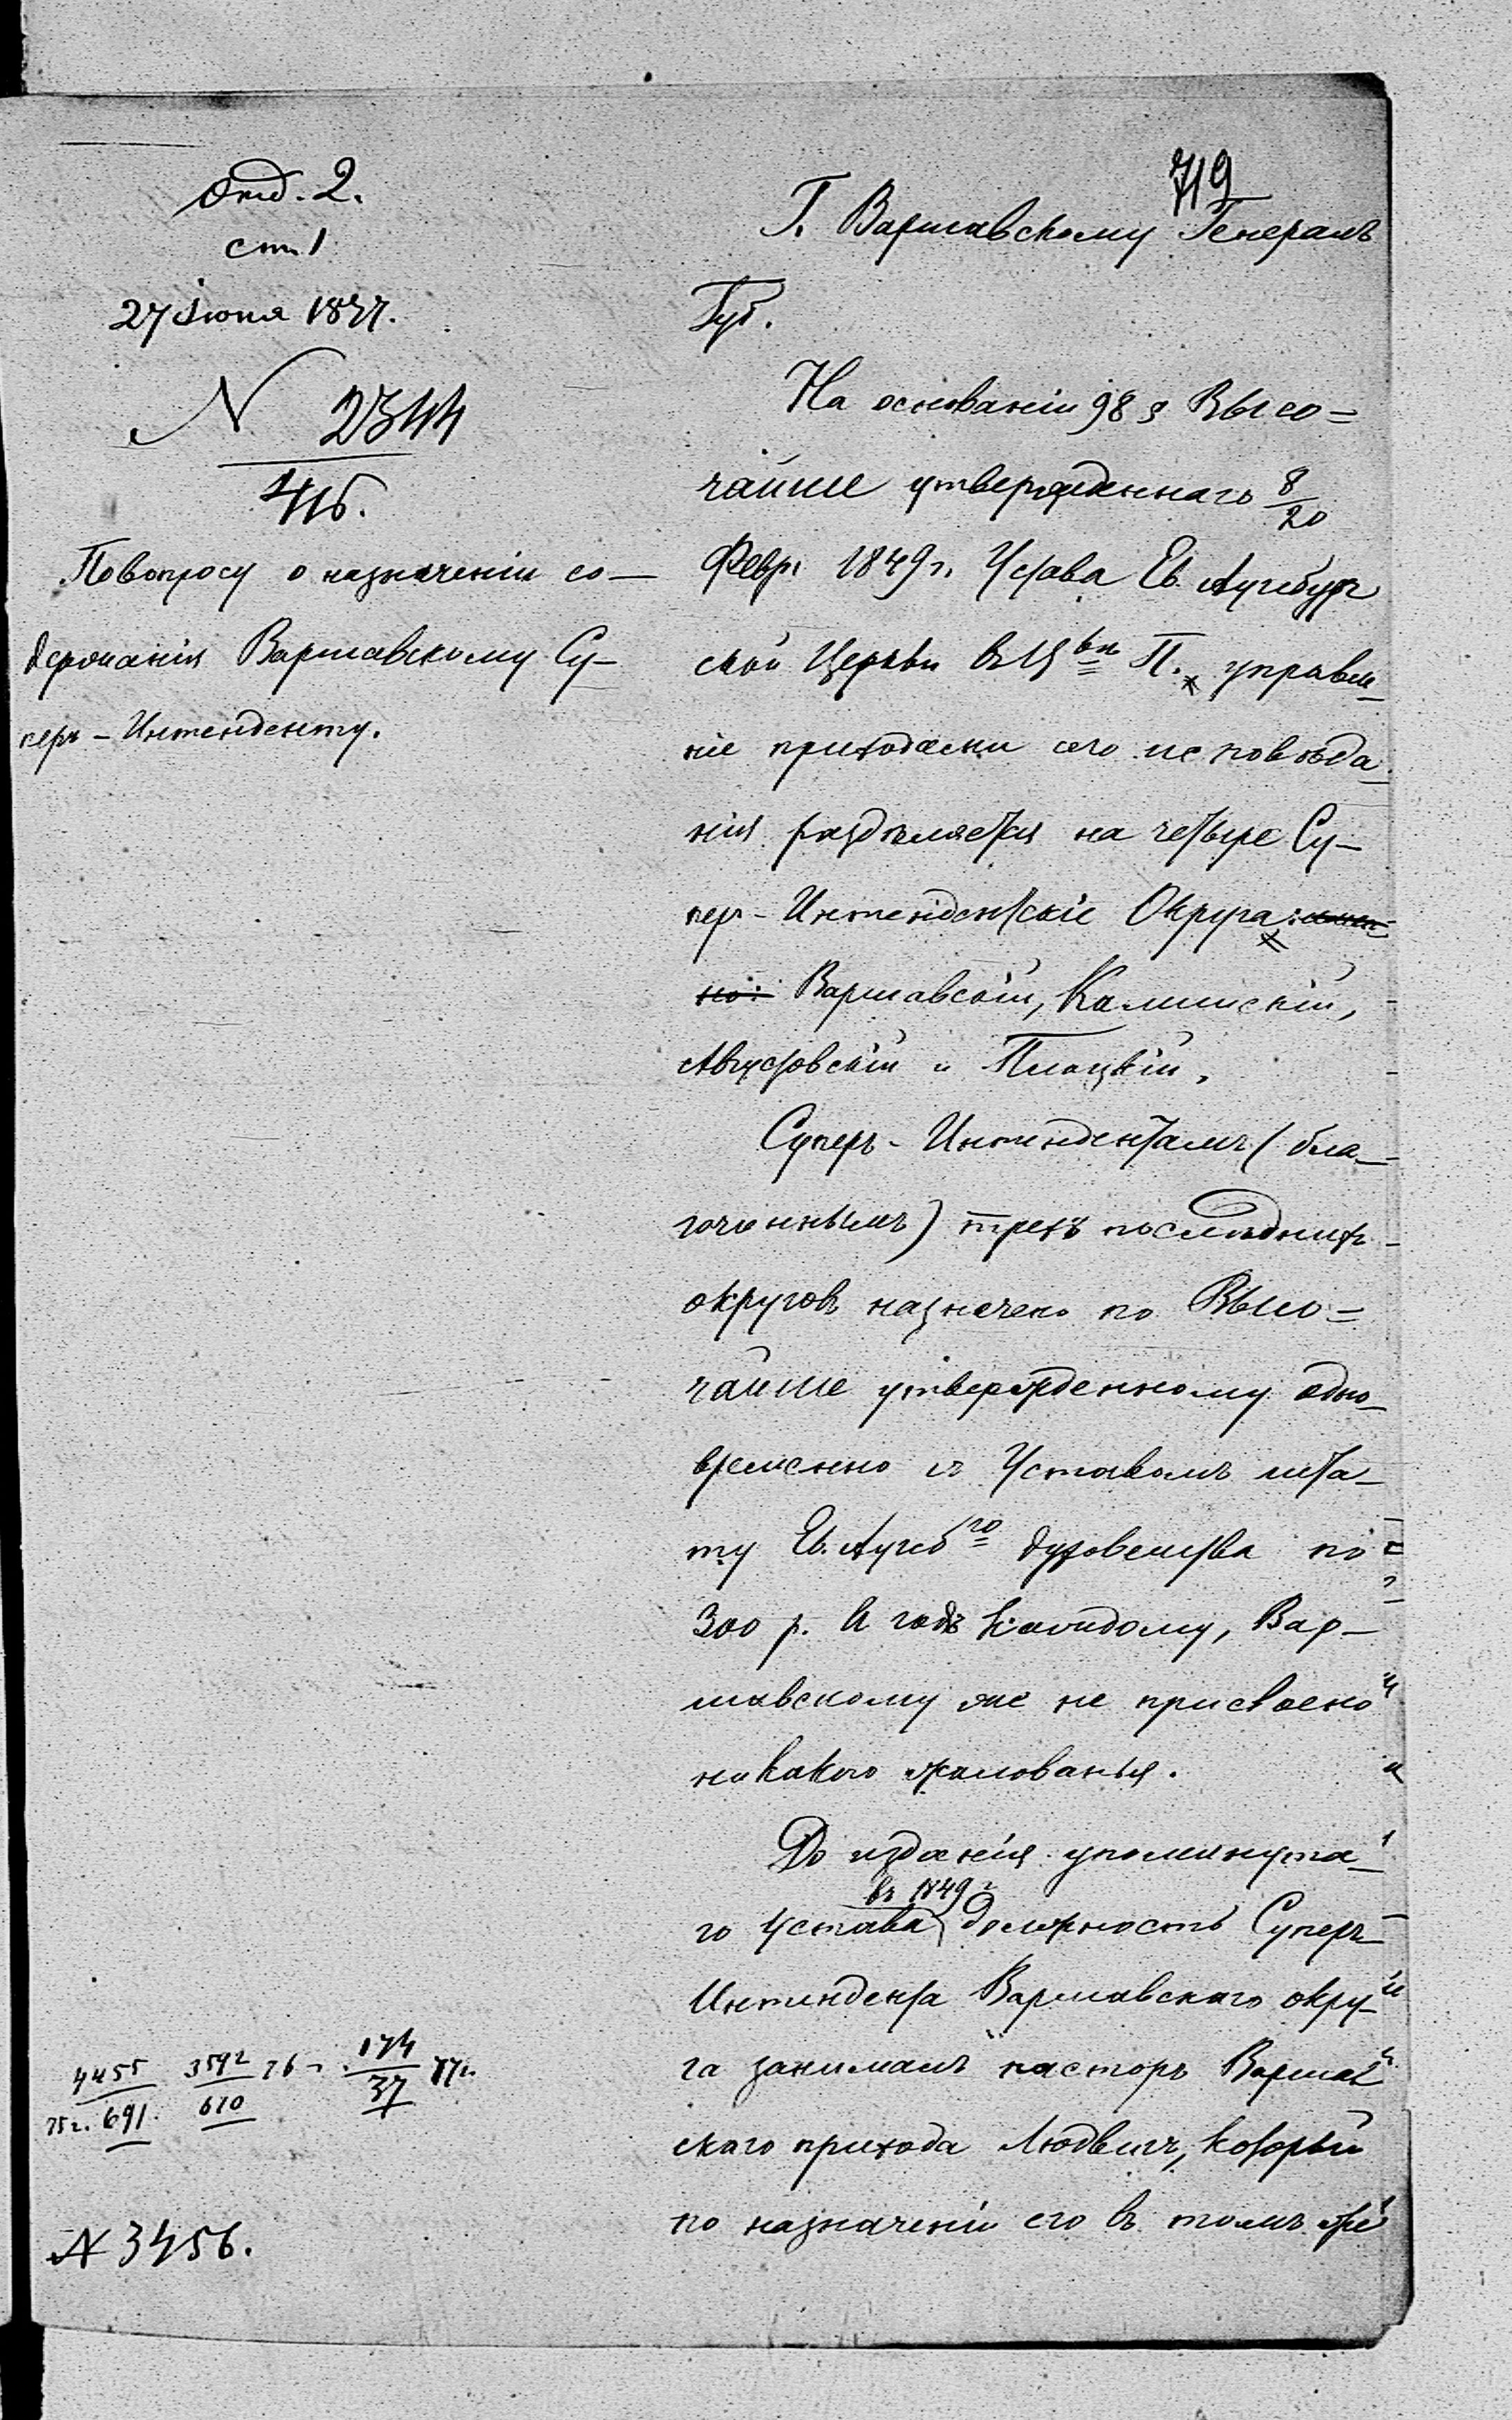 719
Отд. 2.
ст. 1
27 Іюня 1877.
N 2344
416.
По вопросу о назначеніи со-
держанія Варшавскому Су-
перъ-Интенденту.
Г. Варшавскому Генералъ
Губ.
На основаніи 98 § Высо=
чайше утвержденнаго 8/20
Февр. 1849 г. Устава Ев. Аугсбург
ской Церкви въ Ц<sup>вѣ</sup> П. управле-
ніе приходами сего исповѣда-
нія раздѣляется на четыре Су-
перъ-Интендентскіе Округа: имен-
но: Варшавскій, Калишскій,
Августовскій и Плоцкій.
Суперъ-Интендентамъ (бла-
гочиннымъ) трехъ послѣднихъ
округовъ назначено по Высо=
чайше утвержденному одно-
временно съ Уставомъ шта-
ту Ев. Аугсб<sup>го</sup> духовенства по
300 р. въ годъ каждому, Вар-
шавскому же не присвоено
никакого жалованья.
До изданія упомянута-
го Устава въ 1849 г. должность Суперъ-
Интендента Варшавскаго окру-
га занималъ пасторъ Варшав
скаго прихода Людвигъ, который
по назначеніи его въ томъ же
4455 3592 76 г. 174 77 г.
75 г. 691. 610 37
N 3456.